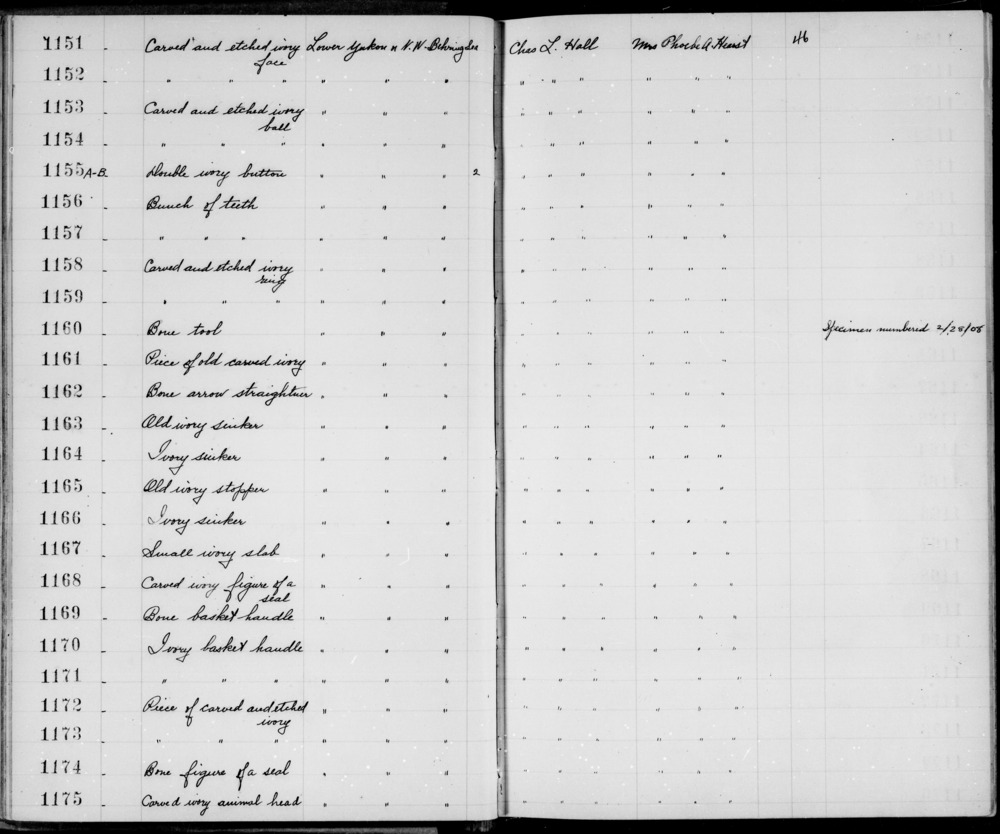 1151 Carved and etched ivory Lower Yukon & N.W. Behring Sea Chas L. Hall Mrs Phoebe A Hearst 46
face
1152 " " " " " " " " " " " "
1153 Carved and etched ivory " " " " " " " " "
ball
1154 " " " " " " " " " " " "
1155 A-B Double ivory button " " " 2 " " " " " "
1156 Bunch of teeth " " " " " " " " "
1157 " " " " " " " " " " " "
1158 Carved and etched ivory " " " " " " " " "
ring
1159 " " " " " " " " " " " "
1160 Bone tool " " " " " " " " " Specimen numbered 2/28/08
1161 Piece of old carved ivory " " " " " " " "
1162 Bone arrow straightner " " " " " " " " "
1163 Old ivory sinker " " " " " " " " "
1164 Ivory sinker " " " " " " " " "
1165 Old ivory stopper " " " " " " " " "
1166 Ivory sinker " " " " " " " " "
1167 Small ivory slab " " " " " " " " "
1168 Carved ivory figure of a " " " " " " " " "
seal
1169 Bone basket handle " " " " " " " " "
1170 Ivory basket handle " " " " " " " " "
1171 " " " " " " " " " " " "
1172 Piece of carved and etched " " " " " " " " "
ivory
1173 " " " " " " " " " " " "
1174 Bone figure of a seal " " " " " " " " "
1175 Carved ivory animal head " " " " " " " " "